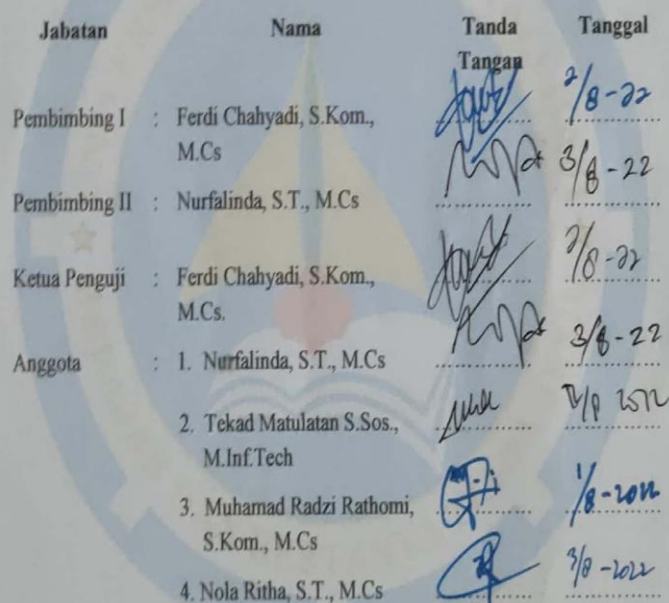 Jabatan Nama Tanda Tanggal
Tangan
Pembimbing I : Ferdi Chahyadi, S.Kom., 2/8-22
M.Cs
3/8-22
Pembimbing II : Nurfalinda, S.T., M.Cs
2/8-22
Ketua Penguji : Ferdi Chahyadi, S.Kom.,
M.Cs.
3/8-22
Anggota : 1. Nurfalinda, S.T., M.Cs
2. Tekad Matulatan S.Sos.,
M.Inf.Tech
3. Muhamad Radzi Rathomi, 1/8-2022
S.Kom., M.Cs
3/8-2022
4. Nola Ritha, S.T., M.Cs